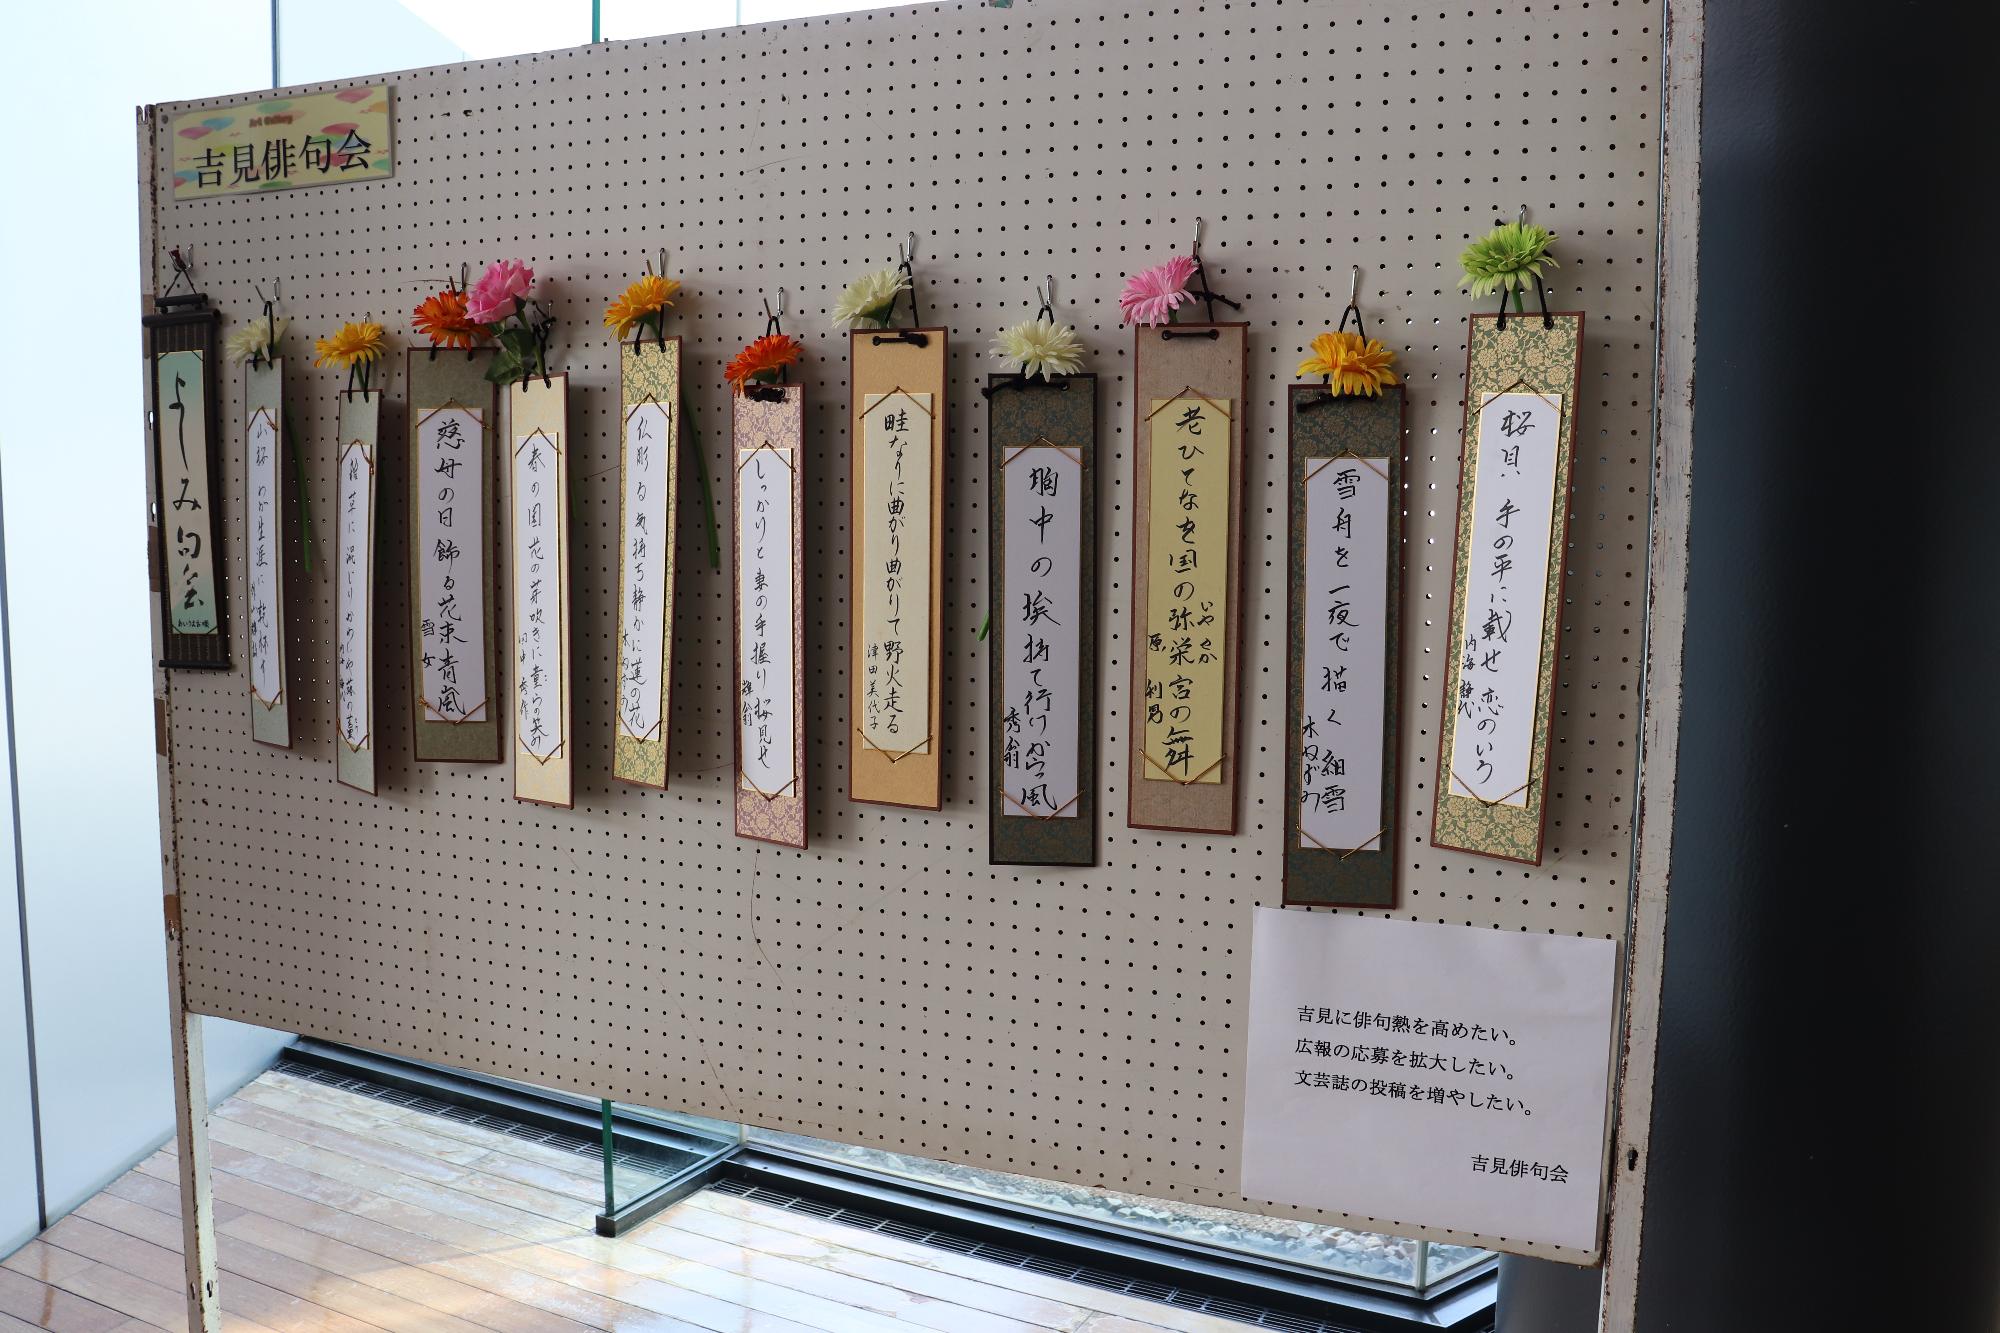 Art Gallery
吉見俳句会
桜貝 手の平に載せ 恋のいろ
内海 静代
雪舟を 一夜で 描く 細雪
木ねずみ
老ひてなを国の弥栄宮の舞
いやさか
原 利男
胸中の 埃 持て行け からっ風
秀翁
畦なりに曲がり曲がりて野火走る
津田美代子
しっかりと 妻の手握り 桜見せ
雄翁
仏彫る 気持ち静かに 蓮の花
木ねずみ
春の園 花の芽吹きに 童らの笑み
田中 秀作
慈母の日 飾る花束 青嵐
雪女
山桜 わが生涯に 乾杯す
よしみ句会
吉見に俳句熱を高めたい。
広報の応募を拡大したい。
文芸誌の投稿を増やしたい。
吉見俳句会